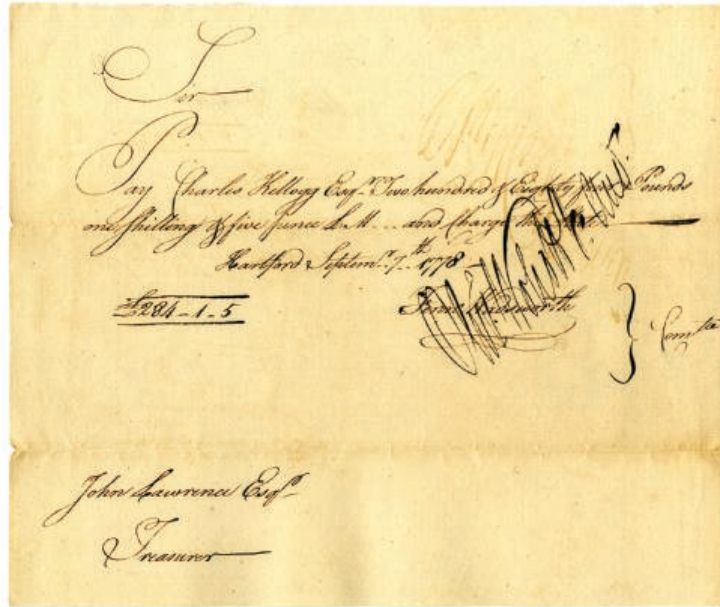 Sir
Pay Charles Kellogg Esqr. Two hundred & Eighty four Pounds
one shilling & five pence L.M... and Charge the State
Hartford Septemr. 7th. 1778
£284-1-5
Fenn Wadsworth
Comtee
John Lawrence Esqr.
Treasurer